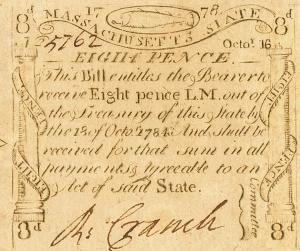 17 78.
MASSACHUSETTS STATE
8d 8d
5762 Octor. 16
EIGHT PENCE.
This Bill entitles the Bearer to
receive Eight pence L.M. out of
the Treasury of this State by
the 18. of Octo. 1784. And shall be
received for that sum in all
payments agreeable to an
Act of said State.
EIGHT PENCE
EIGHT PENCE
Committee
R. Cranch
8d 8d